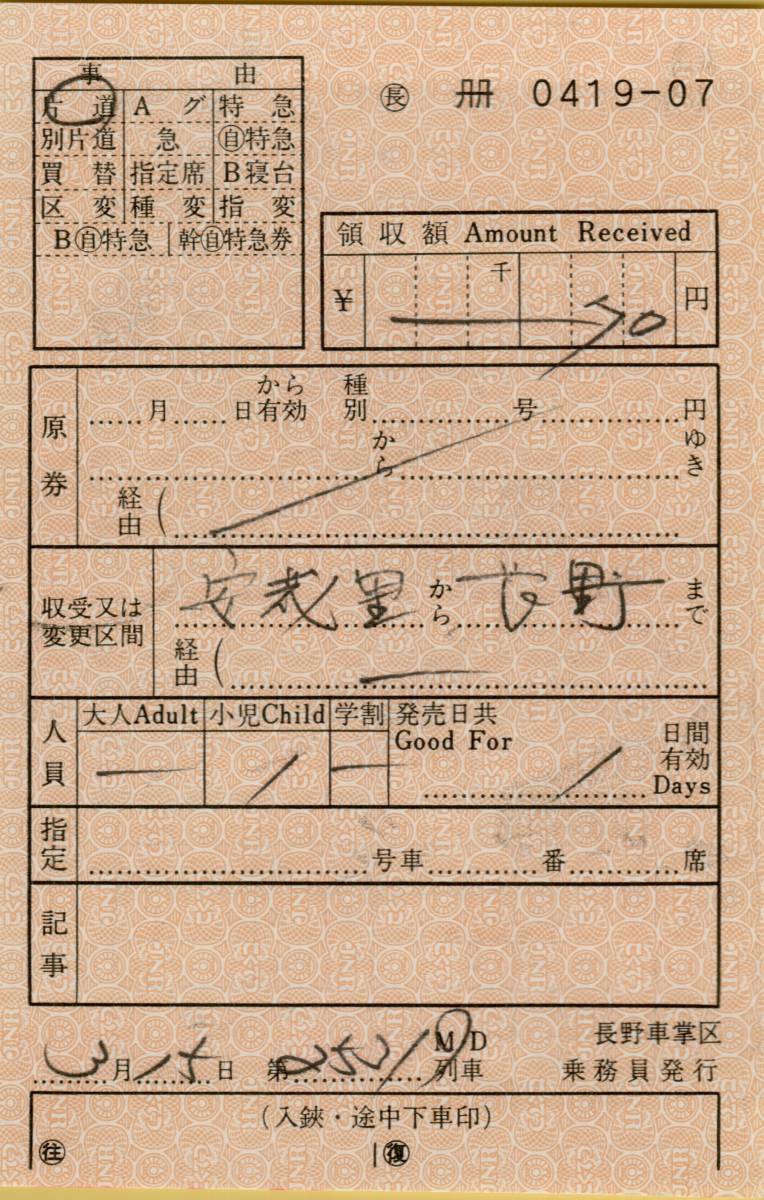 事 由
片 道 A グ 特 急
別片道 急 自特急
買 替 指定席 B寝台
区 変 種 変 指 変
B自特急 幹自特急券
長 冊 0419-07
領 収 額 Amount Received
¥ 千 70 円
原券
月 日 から有効 種別 号 円
から ゆき
経由 (
収受又は変更区間
安茂里 から 長野 まで
経由 ( ー
人員
大人Adult 小児Child 学割 発売日共 Good For 日間有効 Days
ー 1 ー 1
指定 号車 番 席
記事
3月15日 第252 M D 列車
長野車掌区
乗務員発行
(入鋏・途中下車印)
往 復